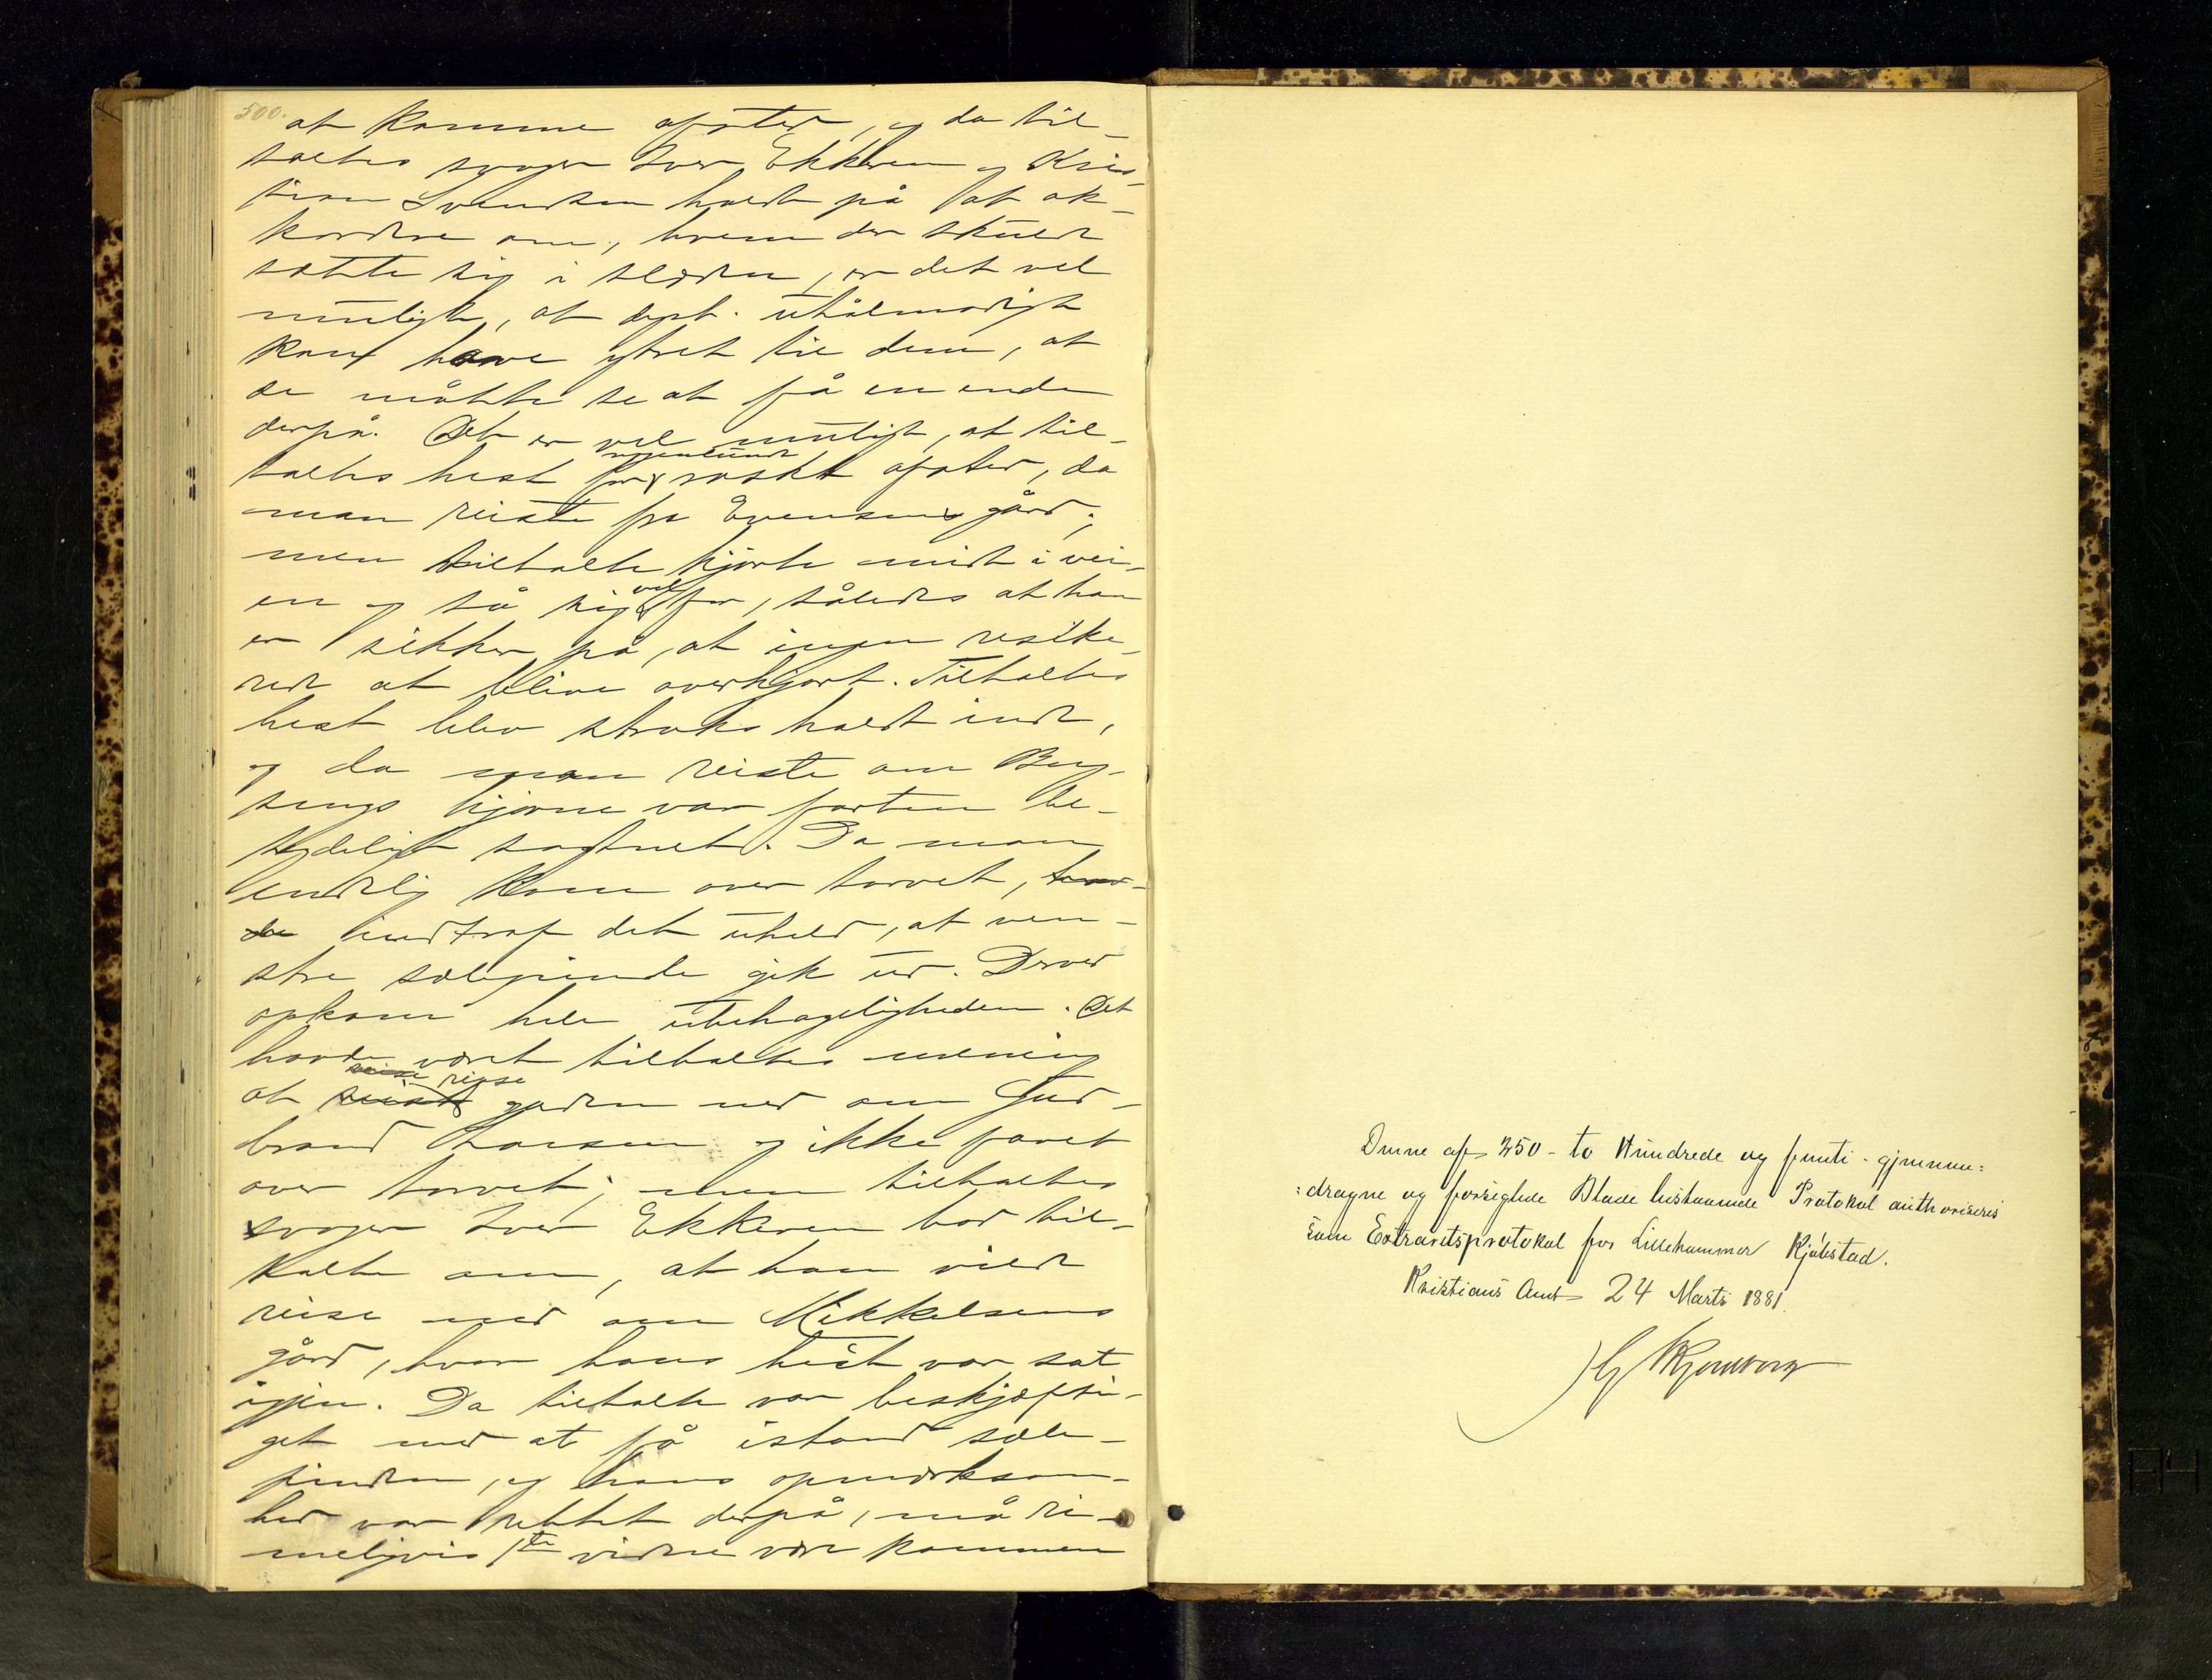 500.
at komme afsted, og da til-
taltes svoger Iver Ekkeren og Kris-
tian Svendsen holdt på at ak-
kordere om, hvem der skulde
sætte sig i slæden, er det vel
muligt, at dept. utålmodigt
kan have ytret til dem, at
de måtte se at få en ende
derpå. Det er vel muligt, at til-
taltes hest for raskt afsted, da
man reiste fra Evensens gård;
men tiltalte kjørte midt i vei-
en og så sig vel for, således at han
er sikker på, at ingen resike-
rede at blive overkjørt. Tiltaltes
hest blev straks holdt inde,
og da man reiste om
hjørne var farten be-
tydeligt sagtnet. Da man
endelig kom over torvet, hav-
de indtraf det uheld, at ven-
stre sælepinde gik ud. Derved
opkom hele ubehageligheden. Det
havde været tiltaltes mening
at reise reise gaden ned om Gud-
brand Larsen og ikke faret
over torvet; men tiltaltes
svoger Iver Ekkeren bad til-
talte om, at han vilde
reise ned om Mikkelsens
gård, hvor hans hest var sat
igjen. Da tiltalte var beskjæfti-
get med at få istand sæle-
pinden, og hans opmærksom-
hed var rettet derpå, må ri-
meligvis 1ste vidne være kommen
Denne af 250 - to Hundrede og femti - gjennem:
:dragne og forseglede Blade bestaaende Protokol authoriseres
som Extraretsprotokol for Lillehammer Kjøbstad.
Kristians Amt 24 Marts 1881.